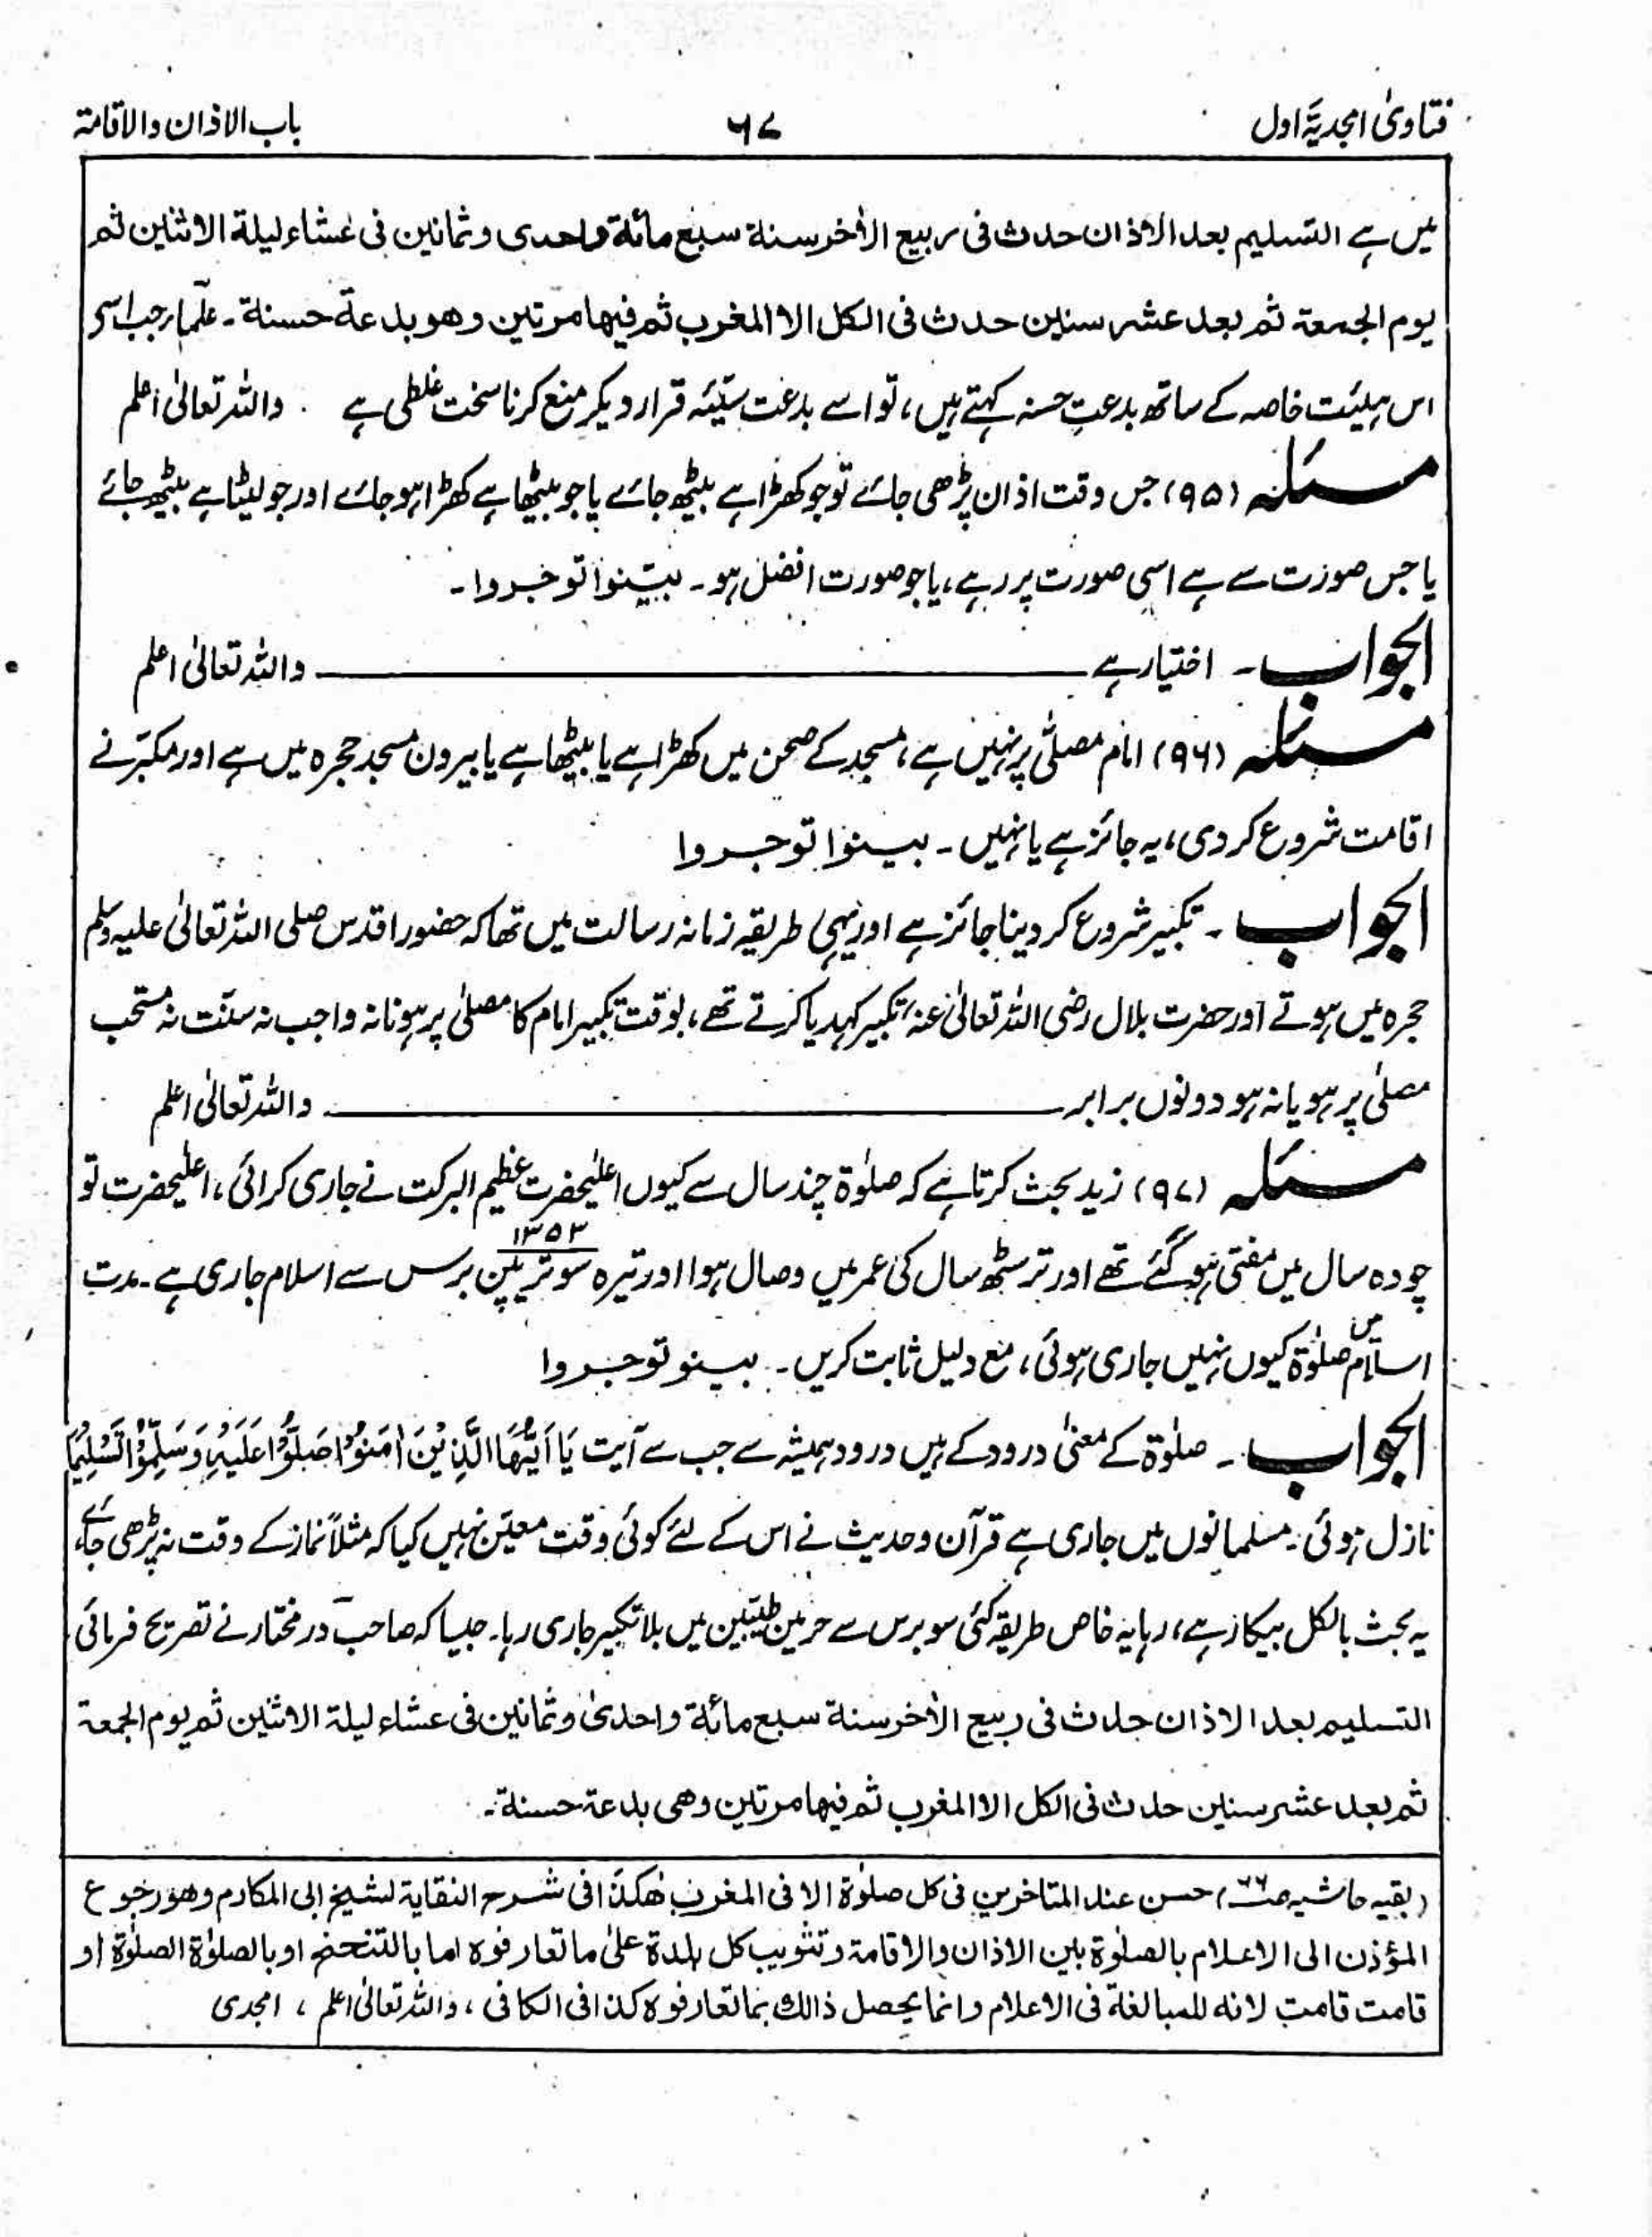 فتاویٰ امجدیہ اول
۶۷
باب الاذان والاقامۃ
میں ہے التسلیم بعد الاذان حدث فی ربیع الاٰخر سنۃ سبع مائۃ واحدی وثمانین فی عشاء لیلۃ الاثنین ثم
یوم الجمعۃ ثم بعد عشر سنین حدث فی الکل الا المغرب ثم فیھا مرتین وھو بدعۃ حسنۃ ۔ علما جب اسی
اس ہیئت خاصہ کے ساتھ بدعتِ حسنہ کہتے ہیں، تو اسے بدعت سیّئہ قرار دیکر منع کرنا سخت غلطی ہے واللہ تعالیٰ اعلم
مسئلہ (۹۵) جس وقت اذان پڑھی جائے تو جو کھڑا ہے بیٹھ جائے یا جو بیٹھا ہے کھڑا ہو جائے اور جو لیٹا ہے بیٹھ جائے
یا جس صورت سے ہے اسی صورت پر رہے، یا جو صورت افضل ہو۔ بیّنوا توجروا۔
الجواب ۔ اختیار ہے ـــــــ واللہ تعالیٰ اعلم
مسئلہ (۹۶) امام مصلّٰی پر نہیں ہے، مسجد کے صحن میں کھڑا ہے یا بیٹھا ہے یا بیرون مسجد حجرہ میں ہے اور مکبّر نے
اقامت شروع کر دی، یہ جائز ہے یا نہیں ۔ بینوا توجروا
الجواب ۔ تکبیر شروع کر دینا جائز ہے اور یہی طریقہ زمانہ رسالت میں تھا کہ حضور اقدس صلی اللہ تعالیٰ علیہ وسلم
حجرہ میں ہوتے اور حضرت بلال رضی اللہ تعالیٰ عنہ تکبیر کہدیا کرتے تھے، بوقت تکبیر امام کا مصلیٰ پر ہونا نہ واجب نہ سنّت نہ مستحب
مصلیٰ پر ہو یا نہ ہو دونوں برابر ـــــــ واللہ تعالیٰ اعلم
مسئلہ (۹۷) زید بحث کرتا ہے کہ صلوٰۃ چند سال سے کیوں اعلیٰحضرت عظیم البرکت نے جاری کرائی، اعلیٰحضرت تو
چودہ سال میں مفتی ہو گئے تھے اور ترسٹھ سال کی عمر میں وصال ہوا اور تیرہ سو ترپن ۱۳۵۳ برس سے اسلام جاری ہے ۔ مدت
اسلام میں صلوٰۃ کیوں نہیں جاری ہوئی، مع دلیل ثابت کریں ۔ بینو توجروا
الجواب ۔ صلوٰۃ کے معنیٰ درود کے ہیں درود ہمیشہ سے جب سے آیت یَا اَیُّھَا الَّذِیْنَ اٰمَنُوْا صَلُّوْا عَلَیْہِ وَسَلِّمُوْا تَسْلِیْمًا
نازل ہوئی ۔ مسلمانوں میں جاری ہے قرآن وحدیث نے اس کے لئے کوئی وقت معیّن نہیں کیا کہ مثلاً نماز کے وقت نہ پڑھی جائے
یہ بحث بالکل بیکار ہے، رہا یہ خاص طریقہ کئی سو برس سے حرمین طیّبین میں بلا نکیر جاری رہا ۔ جیسا کہ صاحب در مختار نے تصریح فرمائی ۔
التسلیم بعد الاذان حدث فی ربیع الاٰخر سنۃ سبع مائۃ واحدیٰ وثمانین فی عشاء لیلۃ الاثنین ثم یوم الجمعۃ
ثم بعد عشر سنین حدث فی الکل الا المغرب ثم فیھا مرتین وھی بدعۃ حسنۃ ۔
(بقیہ حاشیہ صـ۶۶) حسن عند المتاخرین فی کل صلوٰۃ الا فی المغرب ھٰکذا فی شرح النقایۃ لشیخ ابی المکارم وھو رجوع
المؤذن الی الاعلام بالصلوٰۃ بین الاذان والاقامۃ وتثویب کل بلدۃ علیٰ ما تعارفوہ اما بالتنحنح او بالصلوٰۃ الصلوٰۃ او
قامت قامت لانہ للمبالغۃ فی الاعلام وانما یحصل ذالک بما تعارفوہ کذا فی الکافی ، واللہ تعالیٰ اعلم ، امجدی